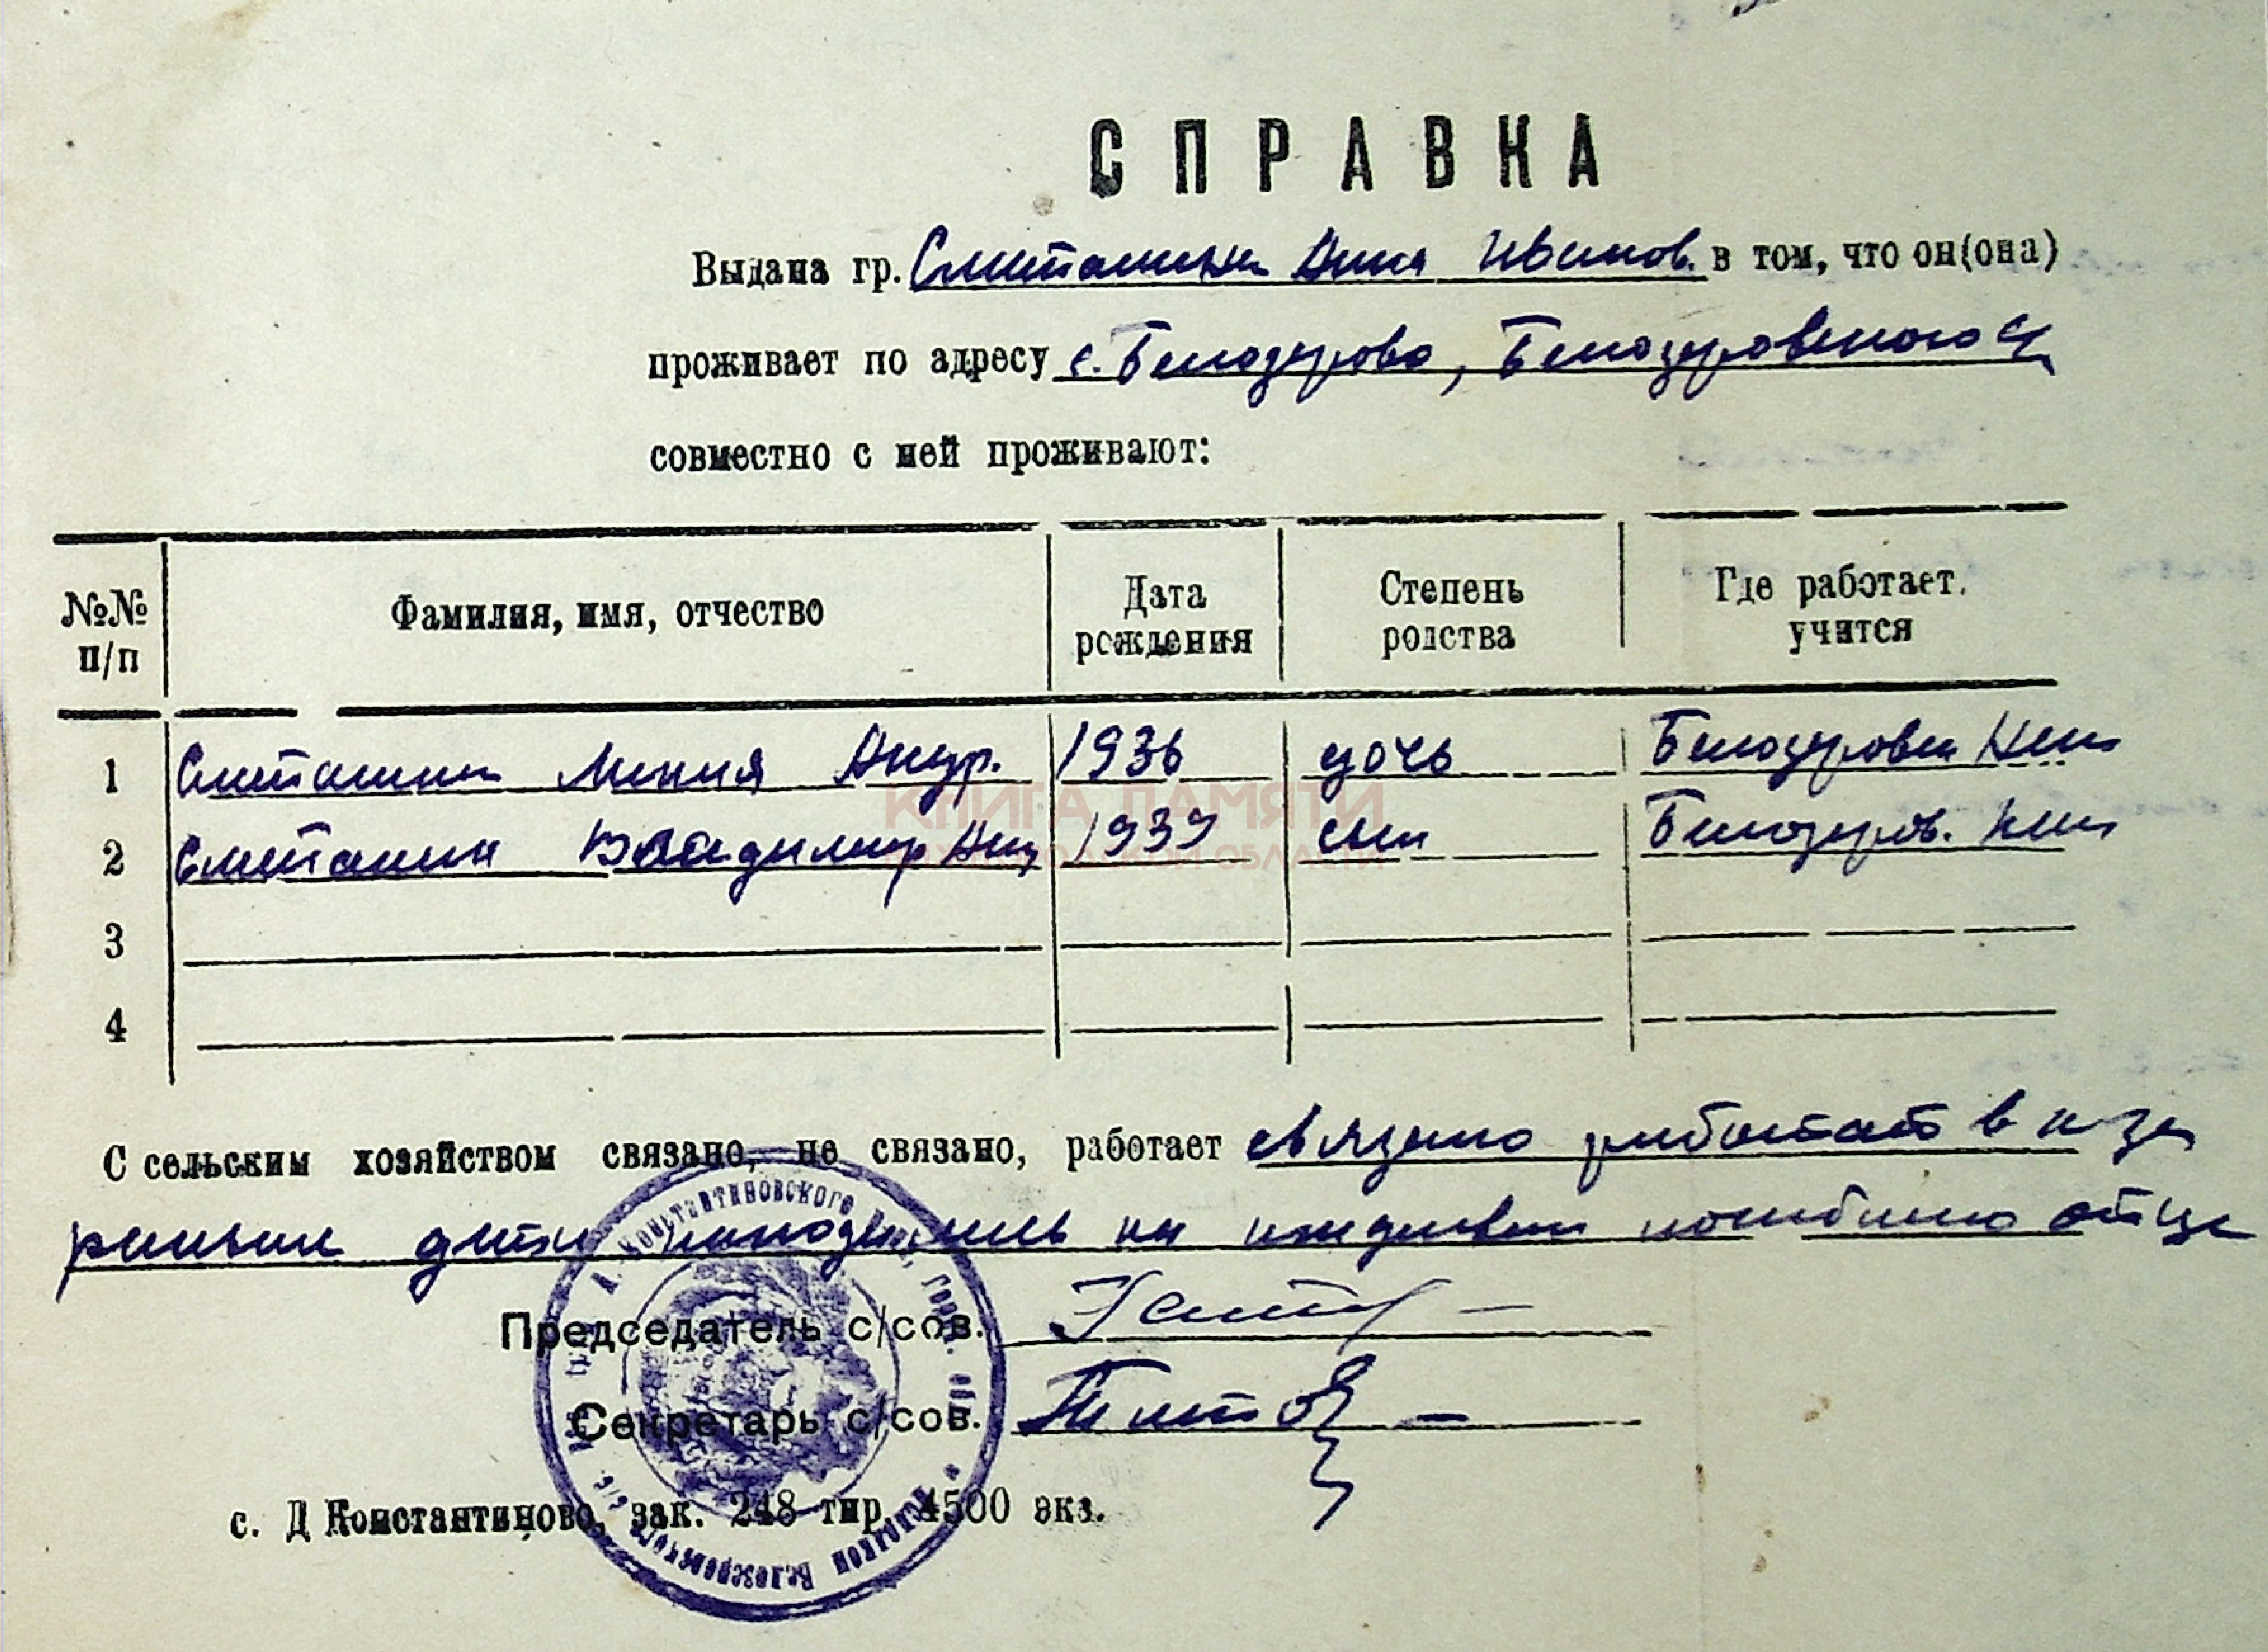 СПРАВКА
Выдана гр. Сметанина Анна Иванов. в том, что он(она)
проживает по адресу с. Белозерово, Белозеровского с/
совместно с ней проживают:
№№ п/п Фамилия, имя, отчество Дата рождения Степень родства Где работает, учится
1 Сметанина Андр. 1936 дочь Белозеровск
2 Сметанин Владимир Анд 1939 сын Белозеров.
3
4
КНИГА ПАМЯТИ
НИЖЕГОРОДСКОЙ ОБЛАСТИ
С сельским хозяйством связано, не связано, работает связано работает в к-зе
дети находились на иждивении погибшего отца
Председатель с/сов.
Секретарь с/сов.
с. Д Константиново, зак. 248 тир. 4500 экз.
Д. Константиновского Горьк. обл. Исполком Белозеровского